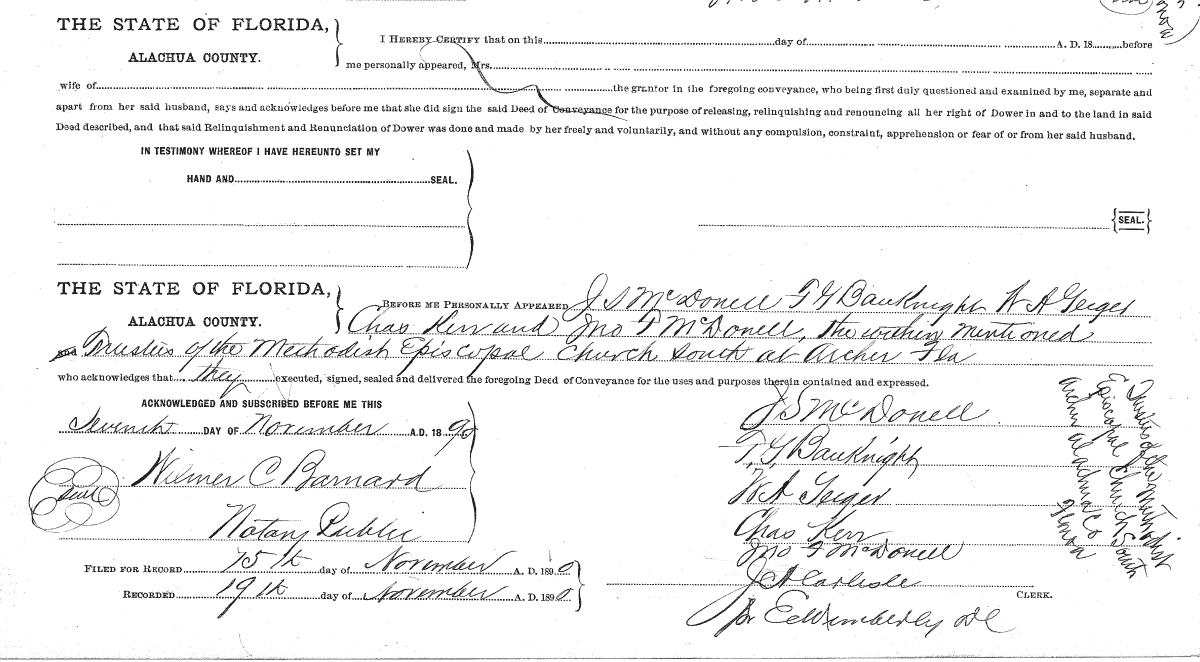 THE STATE OF FLORIDA,
ALACHUA COUNTY.
I HEREBY CERTIFY that on this day of A. D. 18 before
me personally appeared, Mrs.
wife of the grantor in the foregoing conveyance, who being first duly questioned and examined by me, separate and
apart from her said husband, says and acknowledges before me that she did sign the said Deed of Conveyance for the purpose of releasing, relinquishing and renouncing all her right of Dower in and to the land in said
Deed described, and that said Relinquishment and Renunciation of Dower was done and made by her freely and voluntarily, and without any compulsion, constraint, apprehension or fear of or from her said husband.
IN TESTIMONY WHEREOF I HAVE HEREUNTO SET MY
HAND AND SEAL.
{SEAL.}
THE STATE OF FLORIDA,
ALACHUA COUNTY.
BEFORE ME PERSONALLY APPEARED J S McDonell T G Bauknight W A Geiger
Chas Kerr and Jno F McDonell, the within mentioned
and Trustees of the Methodist Episcopal Church South at Archer Fla
who acknowledges that they executed, signed, sealed and delivered the foregoing Deed of Conveyance for the uses and purposes therein contained and expressed.
ACKNOWLEDGED AND SUBSCRIBED BEFORE ME THIS
Seventh DAY OF November A.D. 1890
Wilmer C Barnard
Seal
Notary Public
J S McDonell
T. G Bauknight
W A Geiger
Chas Kerr
Jno F McDonell
Trustees of the Methodist
Episcopal Church South
Archer Alachua Co
FILED FOR RECORD 15th day of November A. D. 1890
RECORDED 19th day of November A. D. 1890
J A Carlisle
CLERK.
pr E Wimberly DC